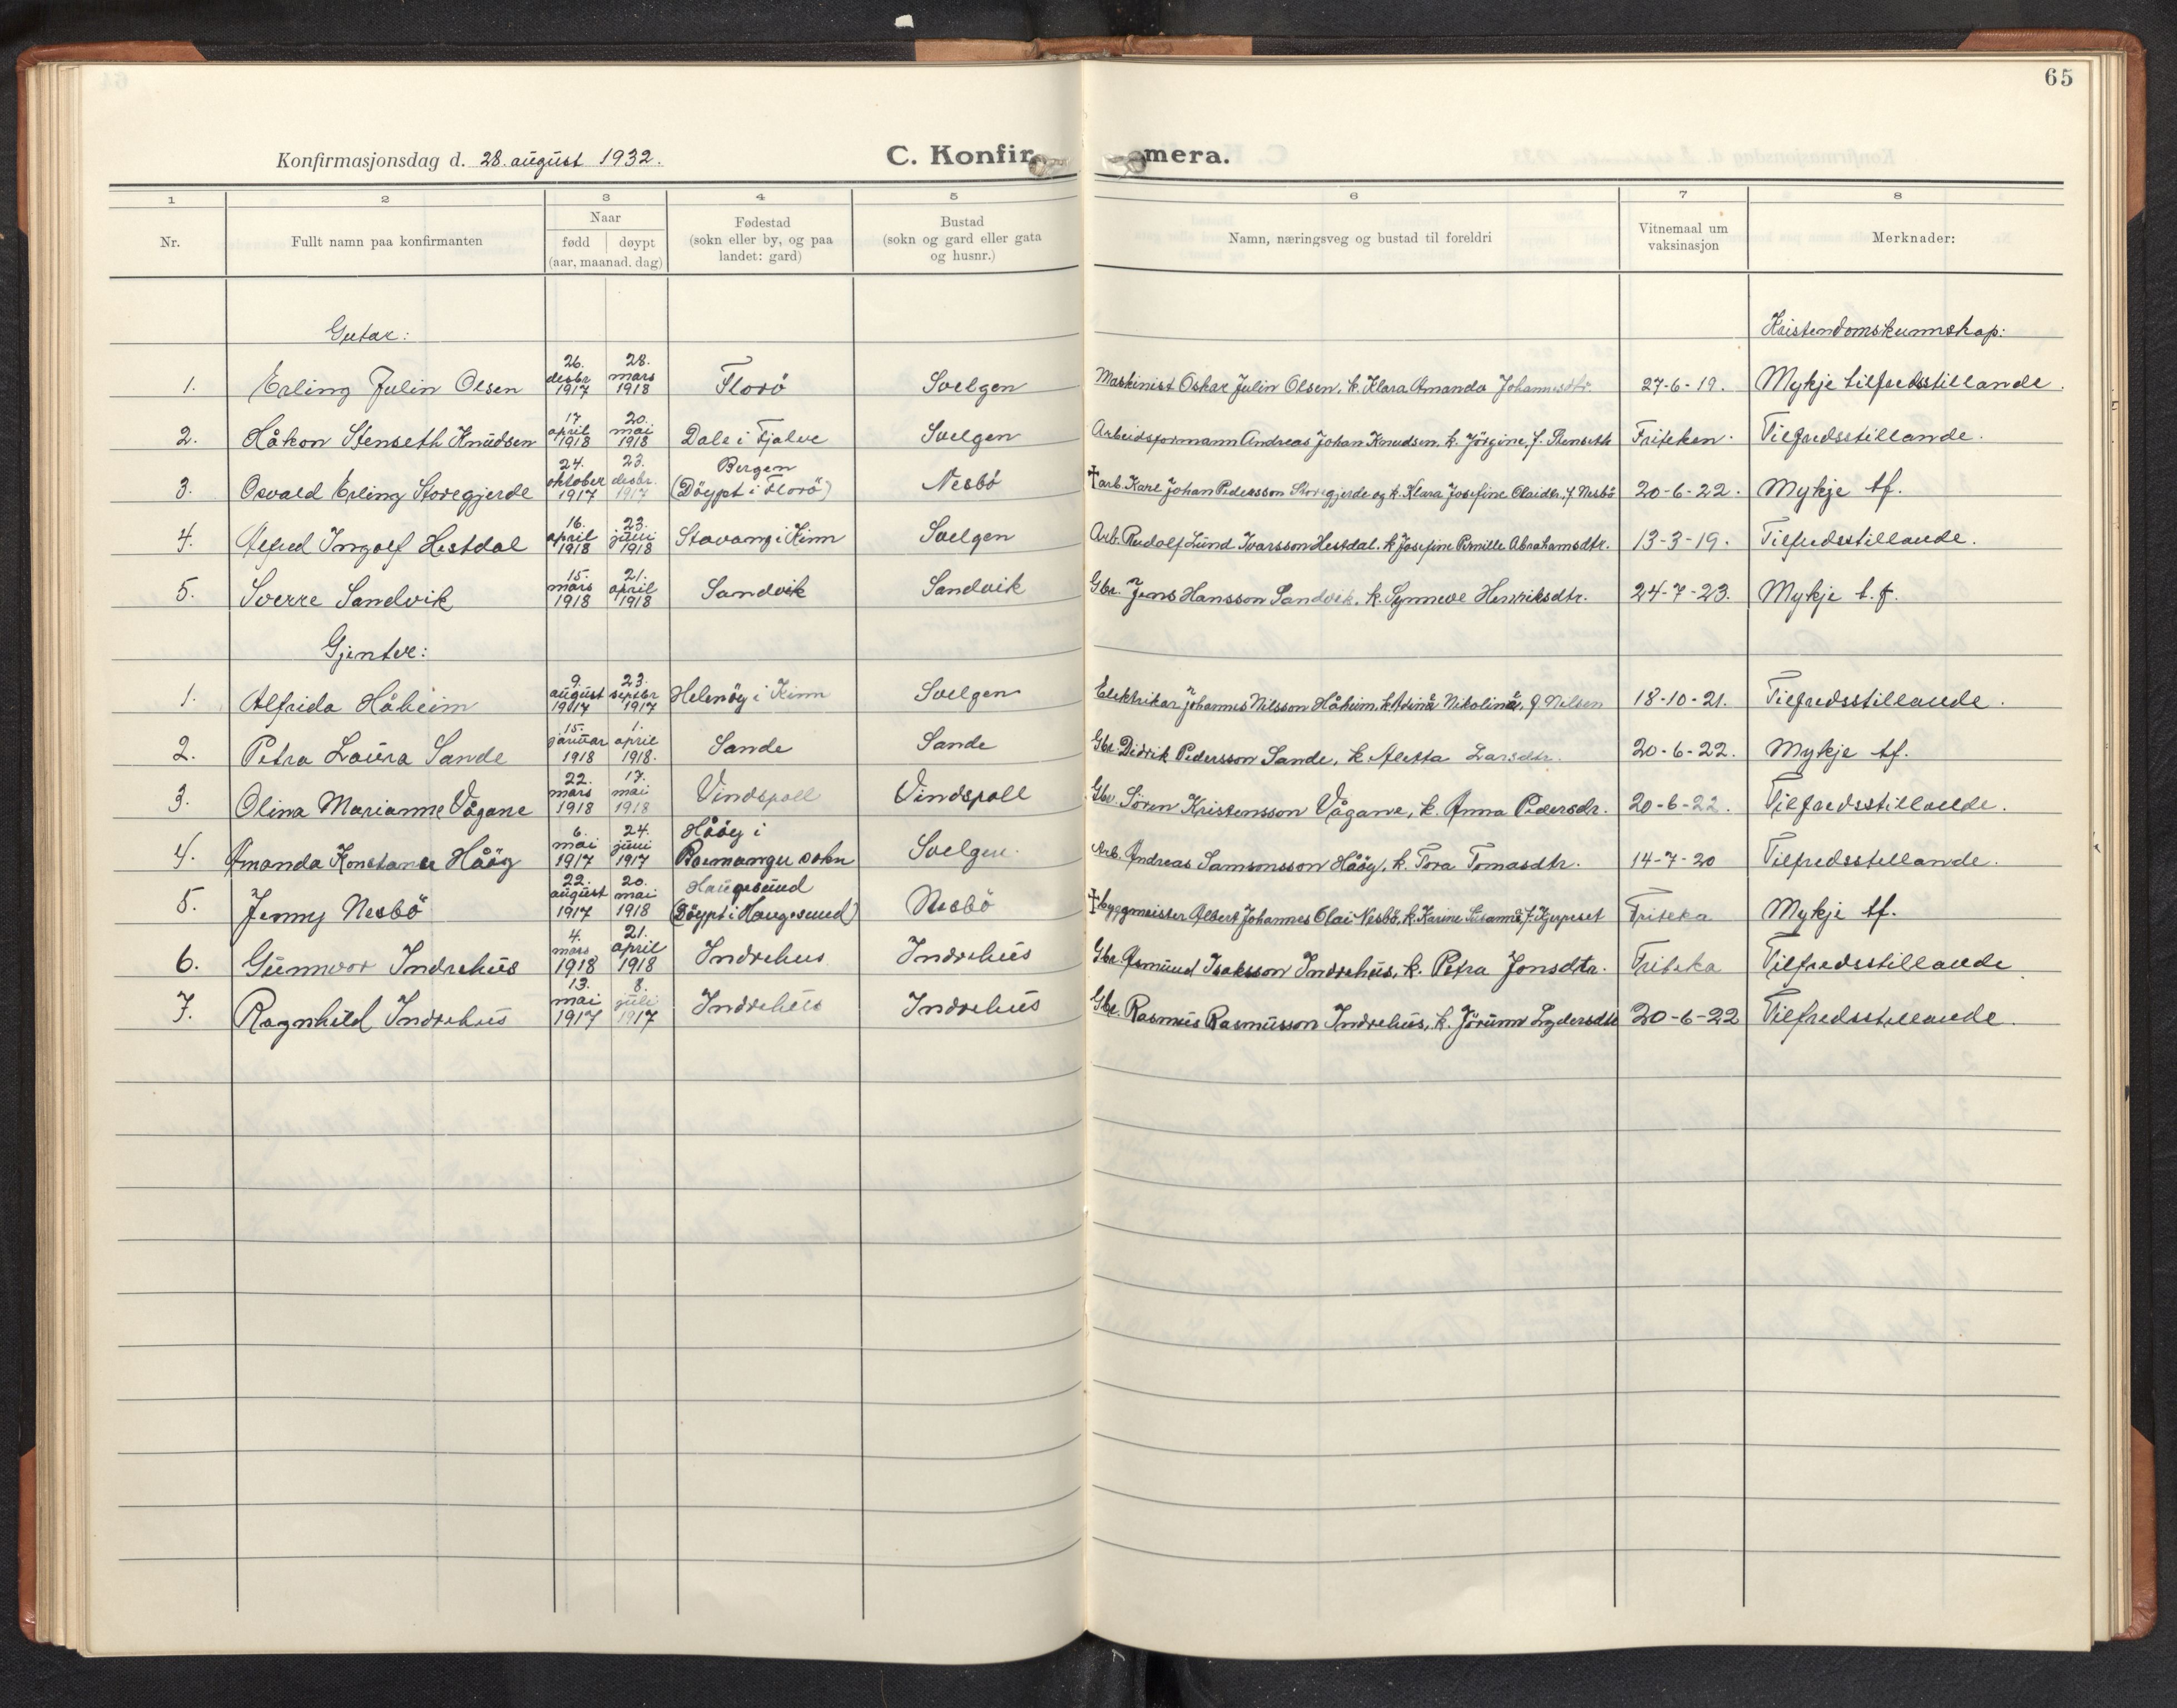 65
Konfirmasjonsdag d. 28. august 1932.
C. Konfir mera.
1 2 3 4 5 6 7 8
Nr.
Fullt namn paa konfirmanten
Naar
fødd døypt
(aar, maanad. dag)
Fødestad
(sokn eller by, og paa
landet: gard)
Bustad
(sokn og gard eller gata
og husnr.)
Namn, næringsveg og bustad til foreldri
Vitnemaal um
vaksinasjon
Merknader:
Gutar: Kristendomskunnskap:
1. Erling Julin Olsen 26. desbr 1917 28. mars 1918 Florö Svelgen Maskinist Oskar Julin Olsen, k. Klara Amanda Johannesdtr. 27-6-19. Mykje tilfredsstillande.
2. Håkon Stenseth Knudsen 17. april 1918 20. mai 1918 Dale i Fjalve Svelgen Arbeidsformann Andreas Johan Knudsen, k. Jörgine, f. Stenseth Friteken. Tilfredsstillande.
3. Osvald Erling Storegjerde 24. oktober 1917 23. desbr. 1917 Bergen (Döypt i Florö) Nesbö † arb. Karl Johan Pedersson Storegjerde og k. Klara Josefine Olaidtr. f. Nesbö 20-6-22. Mykje tf.
4. Alfred Ingolf Hestdal 16. april 1918 23. juni 1918 Stavang i Kinn Svelgen Arb. Rudolf Lund Ivarsson Hestdal, k. Josefine Pernille Abrahamsdtr. 13-3-19. Tilfredsstillande.
5. Sverre Sandvik 15. mars 1918 21. april 1918 Sandvik Sandvik Gbr. Jens Hansson Sandvik, k. Synneve Henriksdtr. 24-7-23. Mykje t.f.
Gjentee:
1. Alfrida Håheim 9. august 1917 23. septbr 1917 Helenöy i Kinn Svelgen Elektrikar Johannes Nilsson Håheim, k. Nikolina, f. Nilsen 18-10-21. Tilfredsstillande.
2. Petra Laura Sande 15. januar 1918 1. april 1918. Sande Sande Gbr. Didrik Pedersson Sande, k. Aletta Larsdtr. 20-6-22. Mykje tf.
3. Olina Marianne Vågane 22. mars 1918 17. mai 1918 Vindspoll Vindspoll Gbr. Sören Kristensson Vågane, k. Anna Pedersdr. 20-6-22. Tilfredsstillande.
4. Amanda Konstanse Hååy 6. mai 1917 24. juni 1917 Hååy i Bremanger sokn Svelgen. Arb. Andreas Samsonsson Hååy, k. Tora Tomasdtr. 14-7-20 Tilfredsstillande.
5. Jenny Nesbö 22. august 1917 20. mai 1918 Haugesund (Döypt i Haugesund) Nesbö † byggmeister Albert Johannes Olai Nesbö, k. Karine Susanna, f. Friteka Mykje tf.
6. Gunnvor Indrehus 4. mars 1918 21. april 1918 Indrehus Indrehus Gbr. Asmund Isaksson Indrehus, k. Petra Jonsdtr. Friteka Tilfredsstillande
7. Ragnhild Indrehus 13. mai 1917 8. juli 1917 Indrehus Indrehus Gbr. Rasmus Rasmusson Indrehus, k. Jörunn Lydersdtr 20-6-22 Tilfredsstillande.